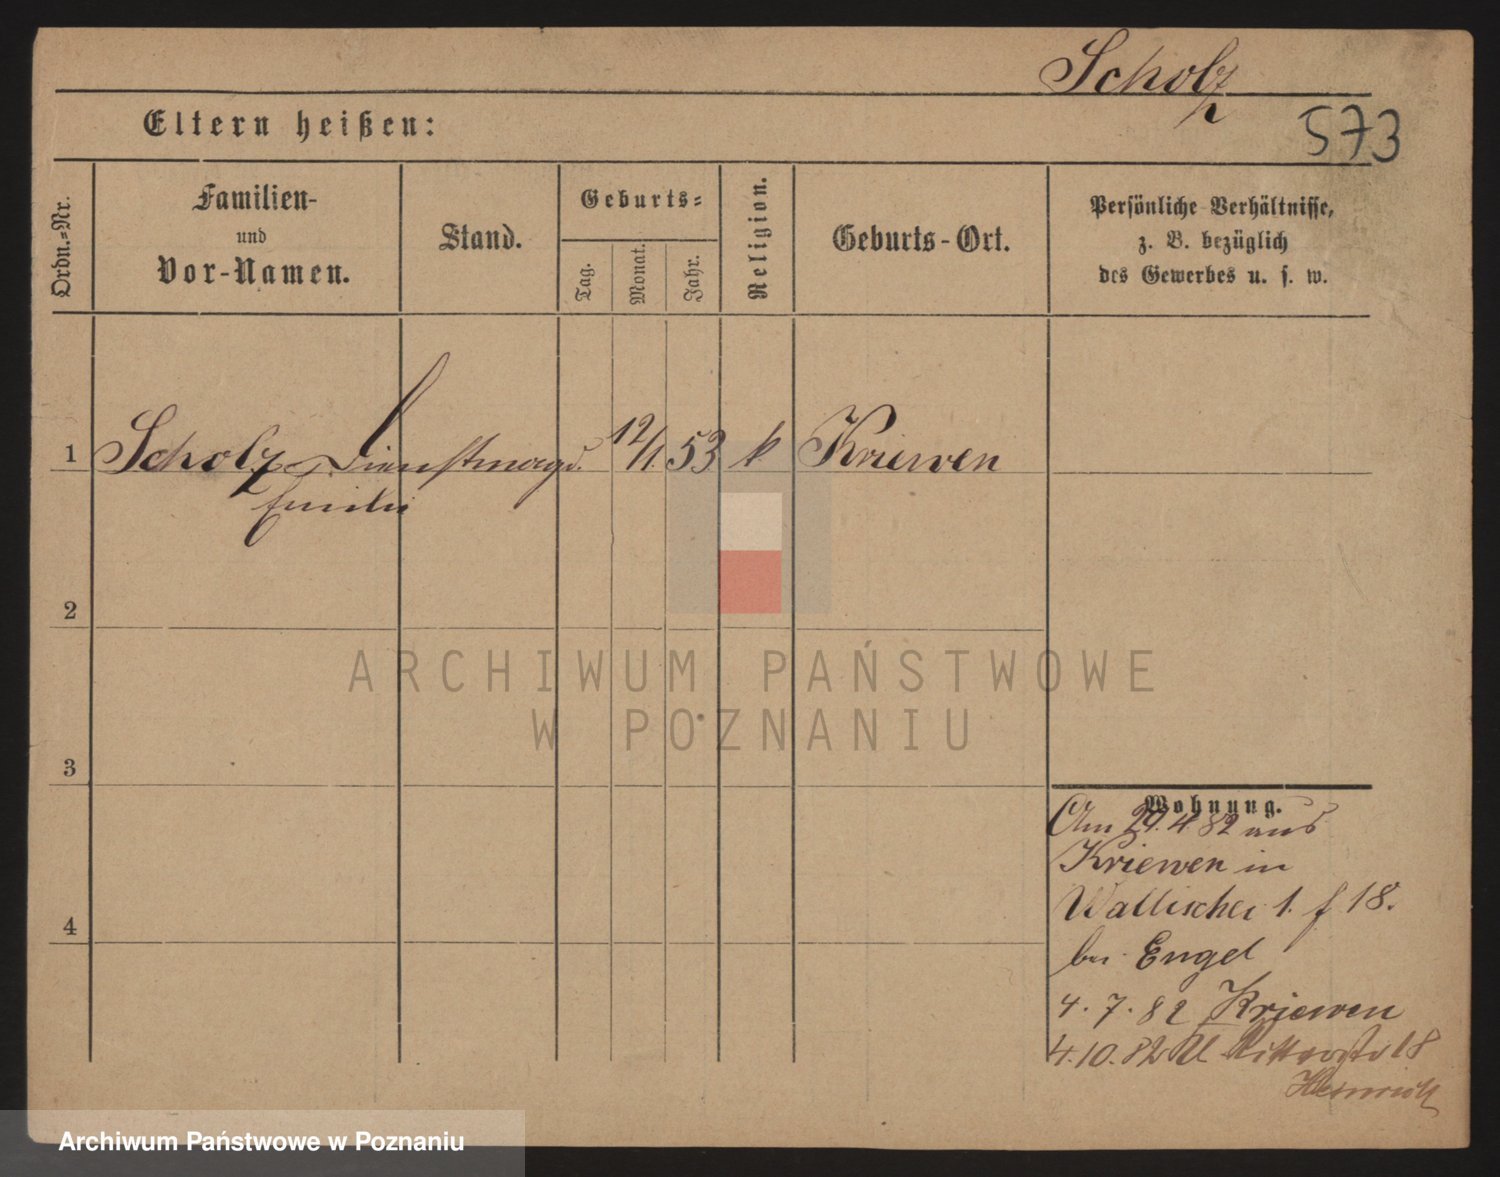 Scholz
573
Eltern heißen:
Ordn.-Nr.
Familien-
und
Vor-Namen.
Stand.
Geburts-
Tag.
Monat.
Jahr.
Religion.
Geburts-Ort.
Persönliche Verhältnisse,
z. B. bezüglich
des Gewerbes u. s. w.
1 Scholz Dienstmagd. 12/1. 53 k Kriewen
Emilie
2
ARCHIWUM PAŃSTWOWE
W POZNANIU
3
Wohnung.
Am 29.4 82 aus
Kriewen in
Wallischei 1. f 18.
bei Engel
4. 7. 82 Kriewen
4
4.10. 82 Ritterstr 18
Heinrich
Archiwum Państwowe w Poznaniu